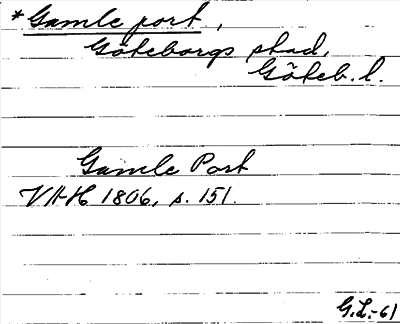 *Gamle port,
Göteborgs stad,
Göteb. l.
Gamle Port
VAH 1806, s. 151.
G.L.-61